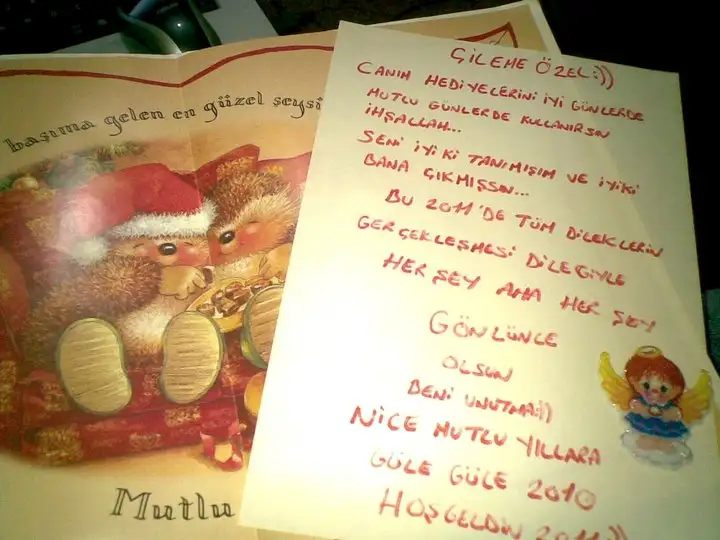 başıma gelen en güzel şeysi
Mutlu
ÇİLEME ÖZEL:))
CANIM HEDİYELERİNİ İYİ GÜNLERDE
MUTLU GÜNLERDE KULLANIRSIN
İHŞALLAH...
SENİ İYİ Kİ TANIMIŞIM VE İYİKİ
BANA ÇIKMIŞSIN...
BU 2011'DE TÜM DİLEKLERİN
GERÇEKLEŞMESİ DİLEĞİYLE
HER ŞEY AMA HER ŞEY
GÖNLÜNCE
OLSUN
BENİ UNUTMA:))
NİCE MUTLU YILLARA
GÜLE GÜLE 2010
HOŞGELDİN 2011:))